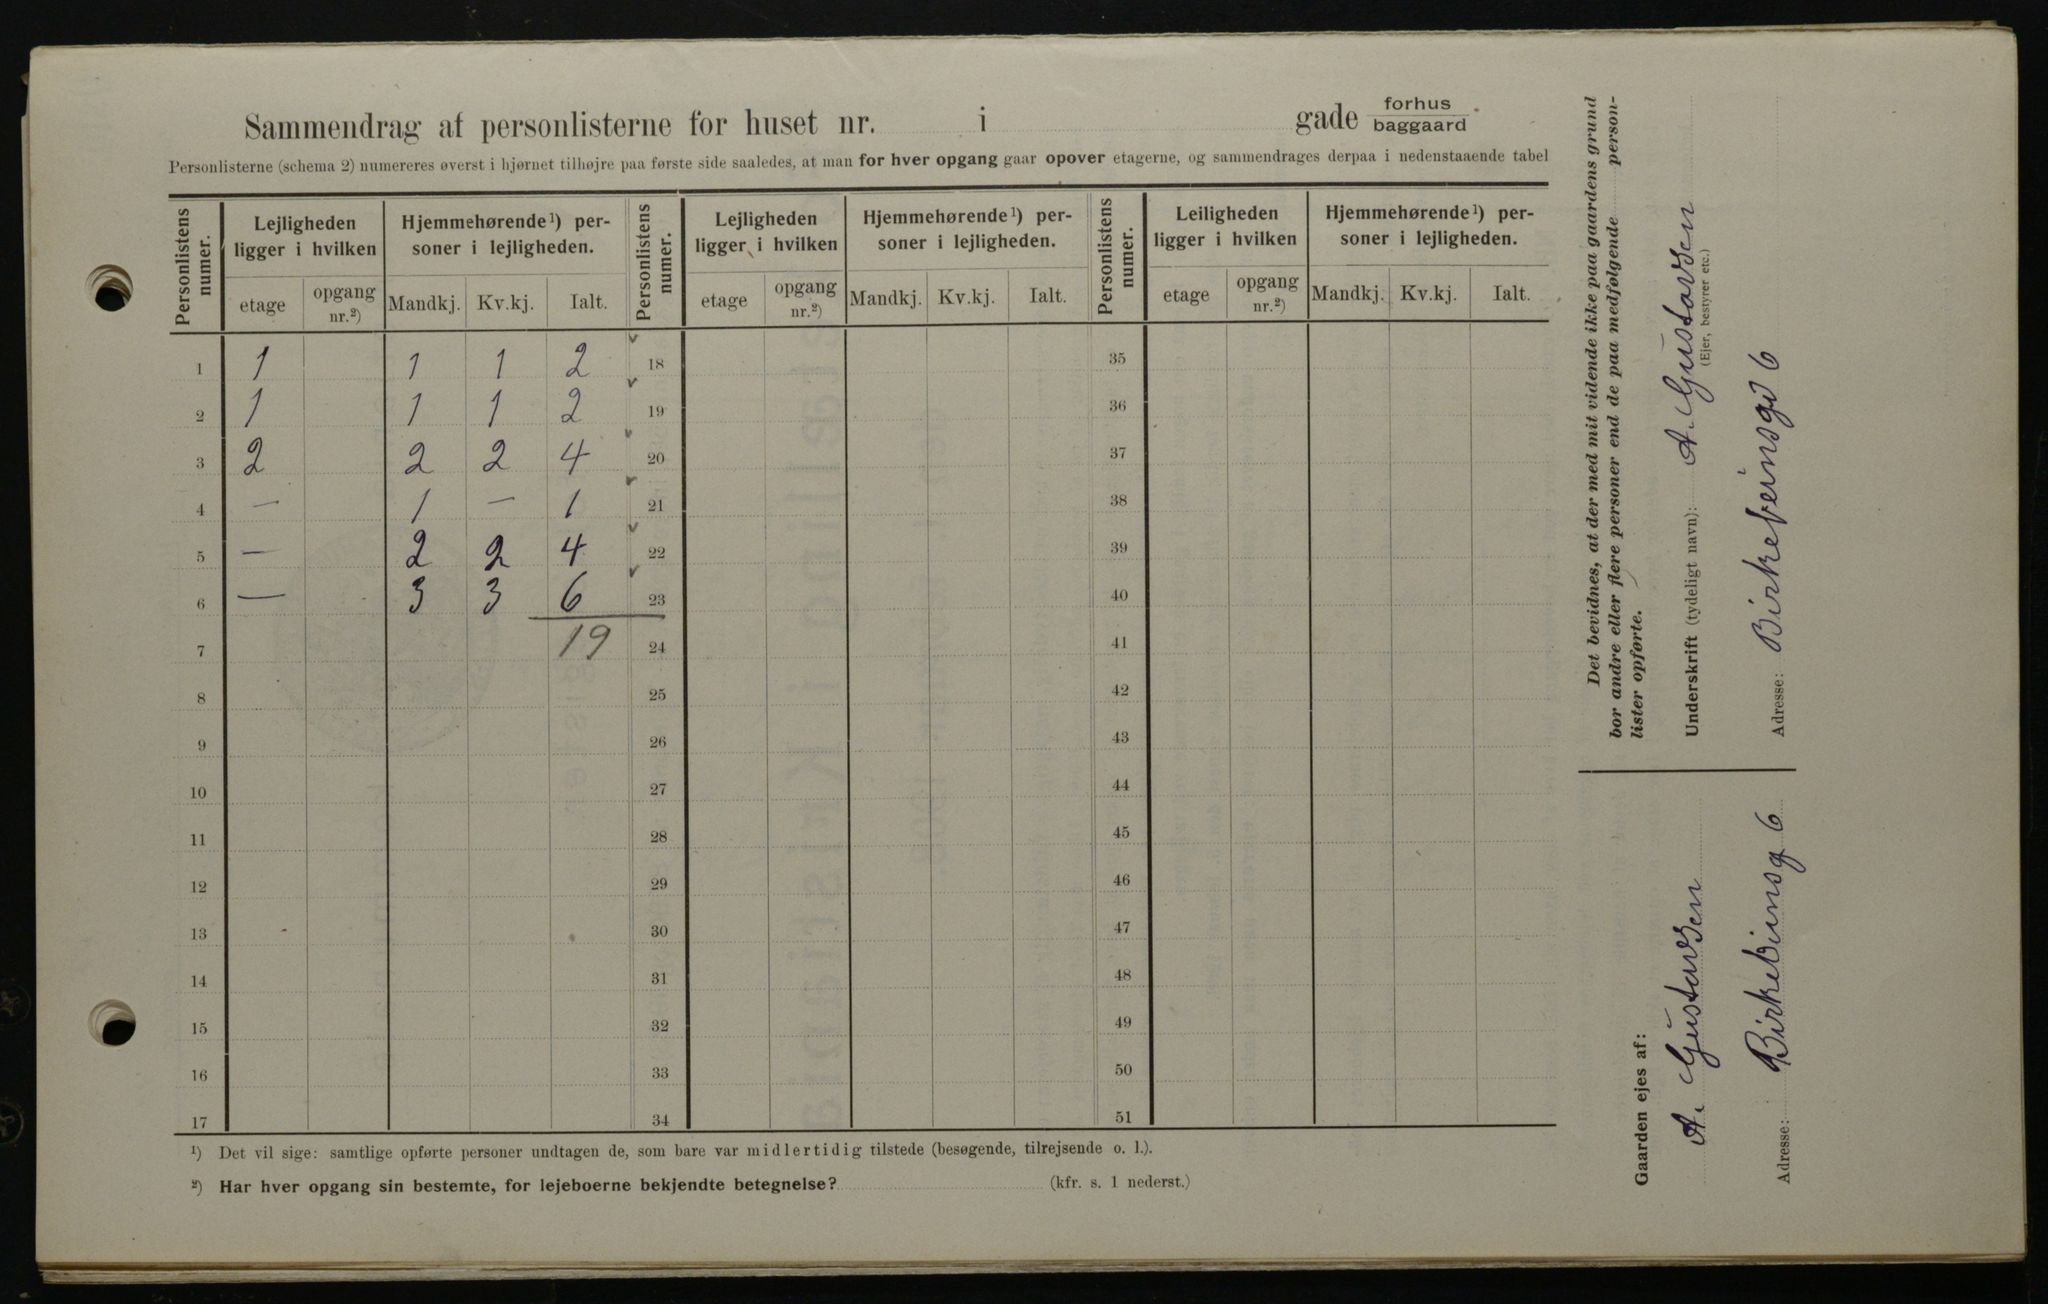 Sammendrag af personlisterne for huset nr. i gade forhus
baggaard
Personlisterne (schema 2) numereres øverst i hjørnet tilhøjre paa første side saaledes, at man for hver opgang gaar opover etagerne, og sammendrages derpaa i nedenstaaende tabel
Personlistens numer. Lejligheden ligger i hvilken Hjemmehørende¹) personer i lejligheden. Personlistens numer. Lejligheden ligger i hvilken Hjemmehørende¹) personer i lejligheden. Personlistens numer. Leiligheden ligger i hvilken Hjemmehørende¹) personer i lejligheden.
etage opgang nr.²) Mandkj. Kv.kj. Ialt. etage opgang nr.²) Mandkj. Kv.kj. Ialt. etage opgang nr.²) Mandkj. Kv.kj. Ialt.
1 1 1 1 2 18 35
2 1 1 1 2 19 36
3 2 2 2 4 20 37
4 — 1 — 1 21 38
5 — 2 2 4 22 39
6 — 3 3 6 23 40
7 19 24 41
8 25 42
9 26 43
10 27 44
11 28 45
12 29 46
13 30 47
14 31 48
15 32 49
16 33 50
17 34 51
¹) Det vil sige: samtlige opførte personer undtagen de, som bare var midlertidig tilstede (besøgende, tilrejsende o. l.).
²) Har hver opgang sin bestemte, for lejeboerne bekjendte betegnelse? (kfr. s. 1 nederst.)
Det bevidnes, at der med mit vidende ikke paa gaardens grund
bor andre eller flere personer end de paa medfølgende person-
lister opførte.
Underskrift (tydeligt navn): A. Gustavsen
(Ejer, bestyrer etc.)
Adresse: Birkebeinsgd 6
Gaarden ejes af:
A. Gustavsen
Adresse: Birkebeinsg 6